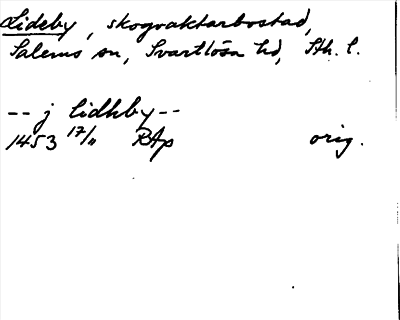 Lideby, skogvaktarbostad,
Salems sn, Svartlösa hd, Sth. l.
-- j lidhby --
1453 17/11 RAp orig.